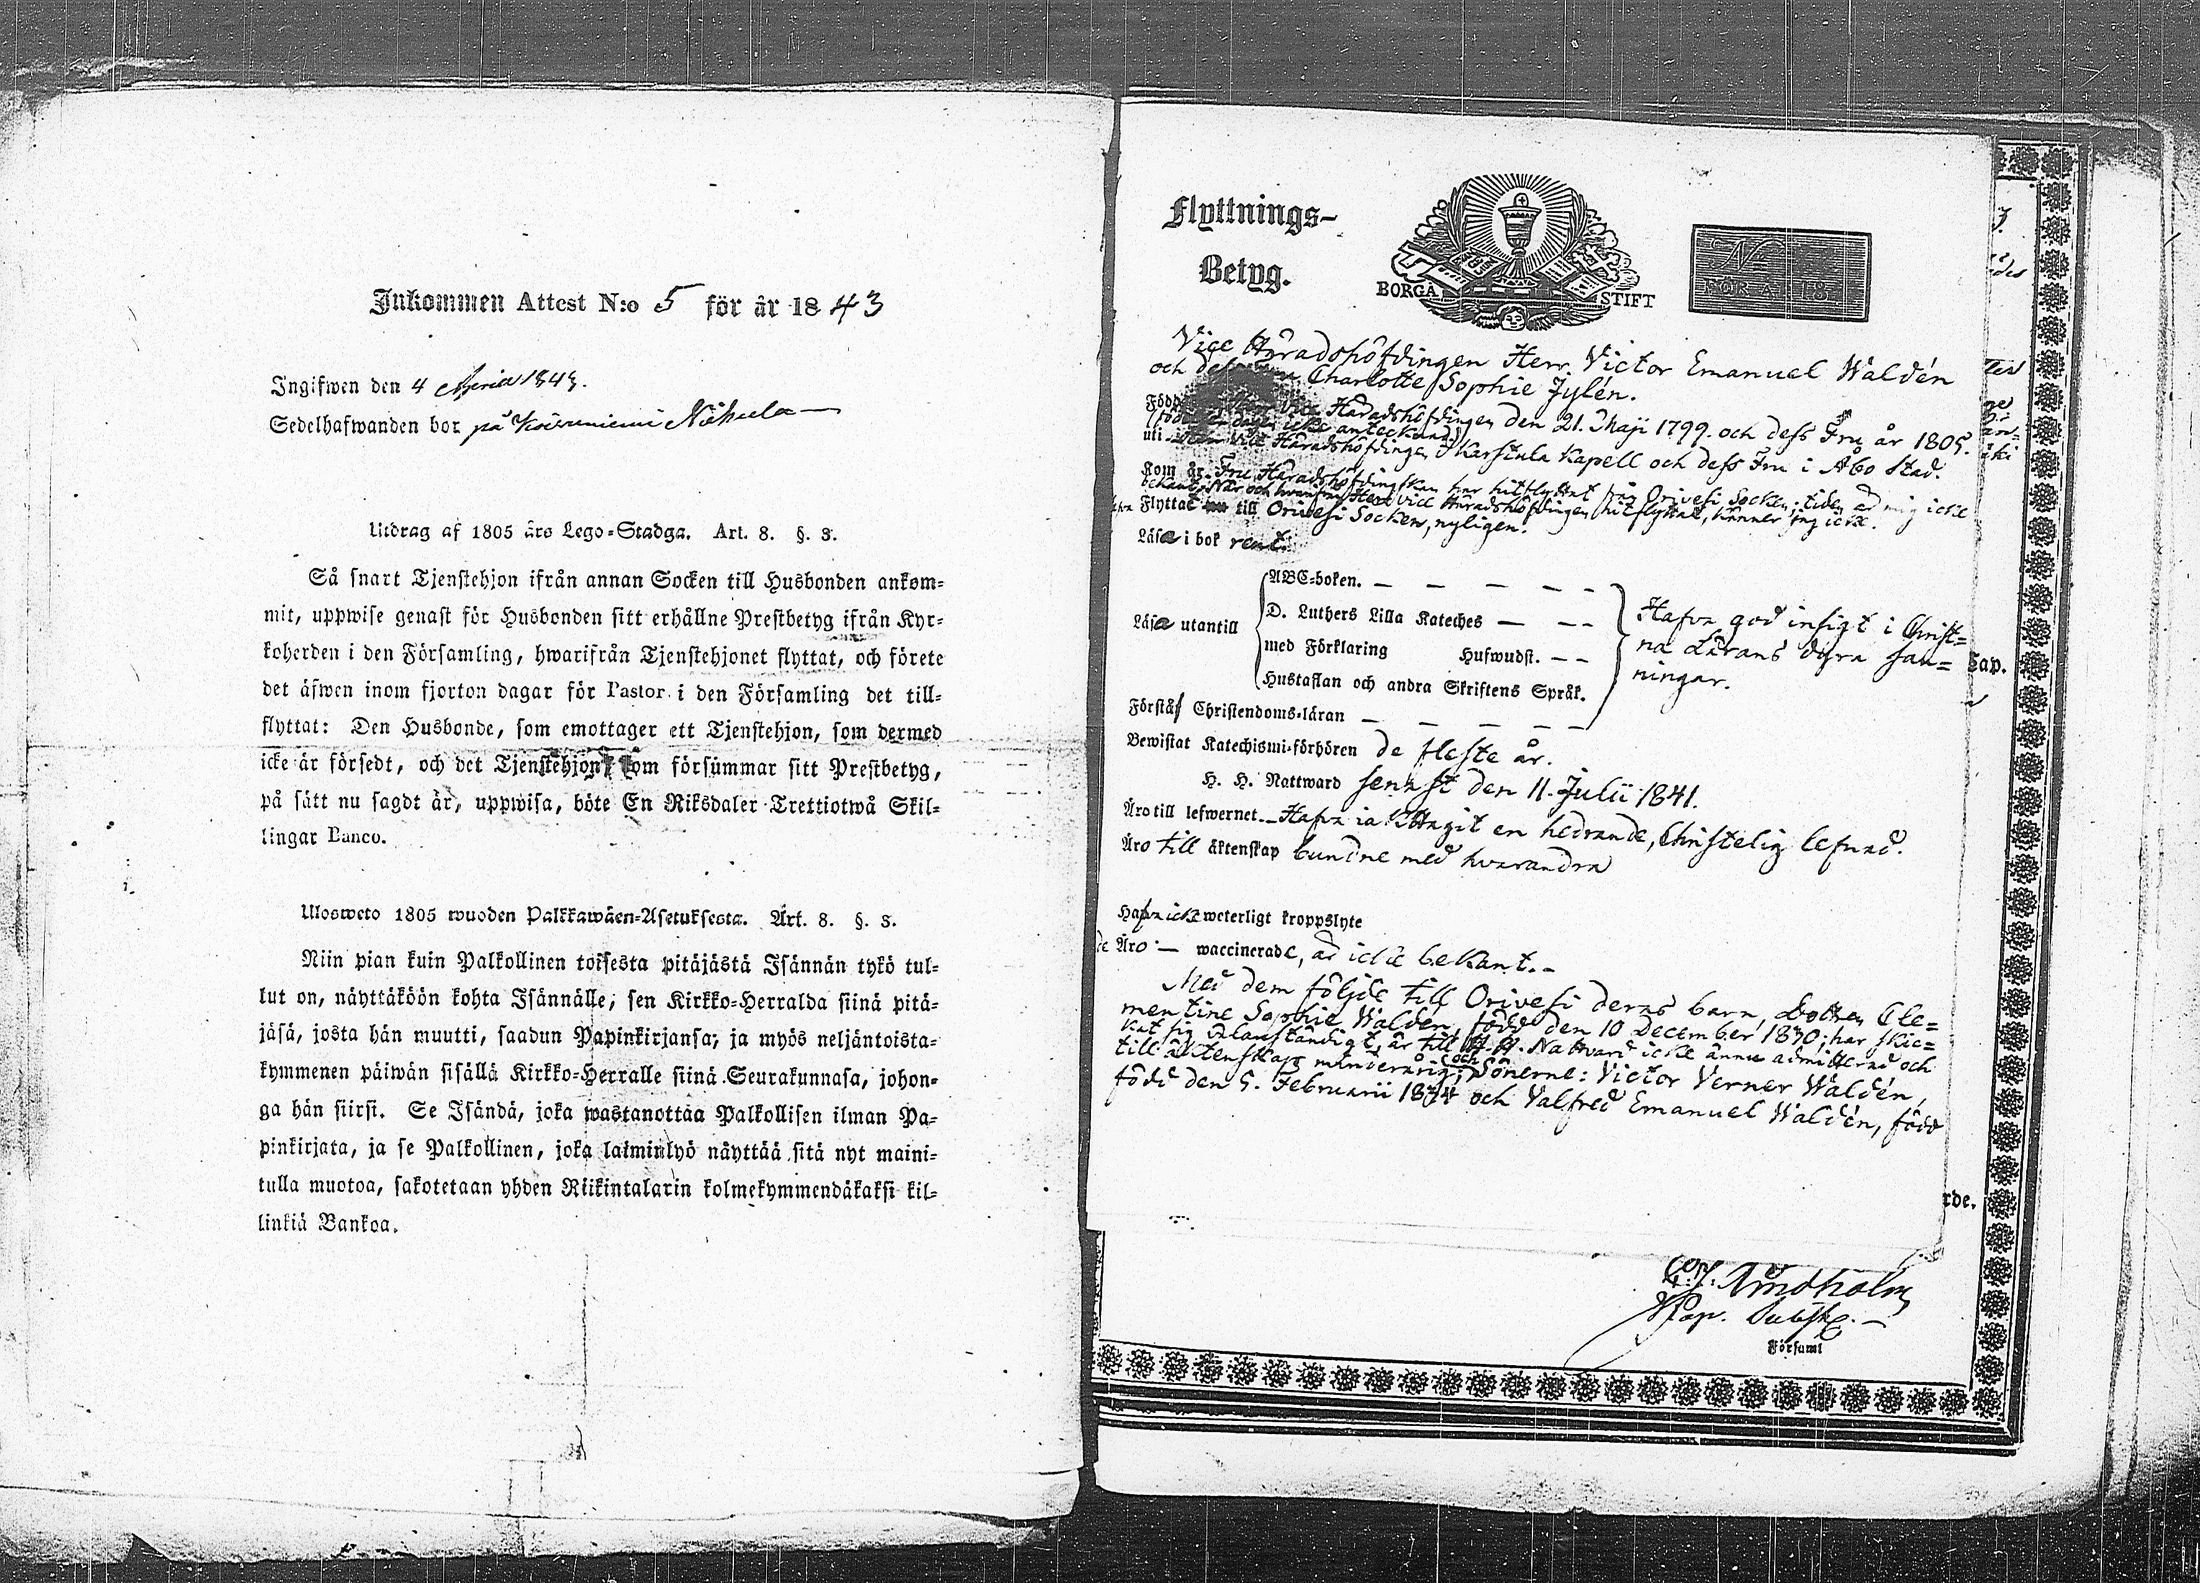 Inkommen Attest N:o 5 för år 1843
Ingifwen den 4 April 1843.
Sedelhafwanden bor på Koivuniemi
Utdrag af 1805 års Lego-Stadga. Art. 8. §. 3.
Så snart Tjenstehjon ifrån annan Socken till Husbonden ankom-
mit, uppwise genast för Husbonden sitt erhållne Prestbetyg ifrån Kyr-
koherden i den Församling, hwarifrån Tjenstehjonet flyttat, och förete
det äfwen inom fjorton dagar för Pastor i den Församling det till-
flyttat: Den Husbonde, som emottager ett Tjenstehjon, som dermed
icke är försedt, och det Tjenstehjon som försummar sitt Prestbetyg,
på sätt nu sagdt är, uppwisa, böte En Riksdaler Trettiotwå Skil-
lingar Banco.
Ulosweto 1805 wuoden Palkkawäen-Asetuksesta. Art. 8. §. 3.
Niin pian kuin Palkollinen toisesta pitäjästä Isännän tykö tul-
lut on, näyttäköön kohta Isännälle, sen Kirkko-Herralda siinä pitä-
jäsä, josta hän muutti, saadun Papinkirjansa; ja myös neljäntoista-
kymmenen päiwän sisällä Kirkko-Herralle siinä Seurakunnasa, johon-
ga hän siirsi. Se Isändä, joka wastanottaa Palkollisen ilman Pa-
pinkirjata, ja se Palkollinen, joka laiminlyö näyttää sitä nyt maini-
tulla muotoa, sakotetaan yhden Riikintalarin kolmekymmendäkaksi kil-
linkiä Bankoa.
Flyttnings-
Betyg.
BORGÅ STIFT
N
FÖR ÅR 18
Vice Häradshöfdingen Herr Victor Emanuel Waldén
och Charlotte Sophie Jylén.
Född Vice Häradshöfdingen den 21. Maji 1799. och dess Fru år 1805.
dagen icke antecknad)
uti Vice Häradshöfdingen i Karstula Kapell och dess Fru i Åbo Stad.
Kom år Fru Häradshöfdingskan har hitflyttat från Orivesi Socken; tiden är mig icke
bekant; När och hvarifrån Herr Vice Häradshöfdingen hitflyttat, känner jag icke.
Flyttat till Orivesi Socken, nyligen.
Läsa i bok rent.
Läsa utantill
ABC-boken.
D. Luthers Lilla Kateches
med Förklaring Hufwudst.
Hustaflan och andra Skriftens Språk.
Förstå Christendoms-läran
Hafva god insigt i Christ-
na Lärans dyra san-
ningar.
Bewistat Katechismi-förhören de fleste år.
H. H. Nattward senast den 11. Julii 1841.
Äro till lefwernet Hafva iakttagit en hedrande, Christelig lefnad.
Äro till äktenskap bundne med hvarandra
Hafva icke weterligt kroppslyte
Äro waccinerade, är icke bekant.
Med dem följde till Orivesi deras barn, Dotter Cle-
mentine Sophie Waldén, född den 10 December 1830; har skic-
kat sig välanständigt, är till H. H. Nattvard icke ännu admitterad och
till äktenskap minderårig; och Sönerne: Victor Verner Waldén,
född den 5. Februarii 1834 och Valfred Emanuel Waldén, född
Lindholm
Församl
Cap.
rde.